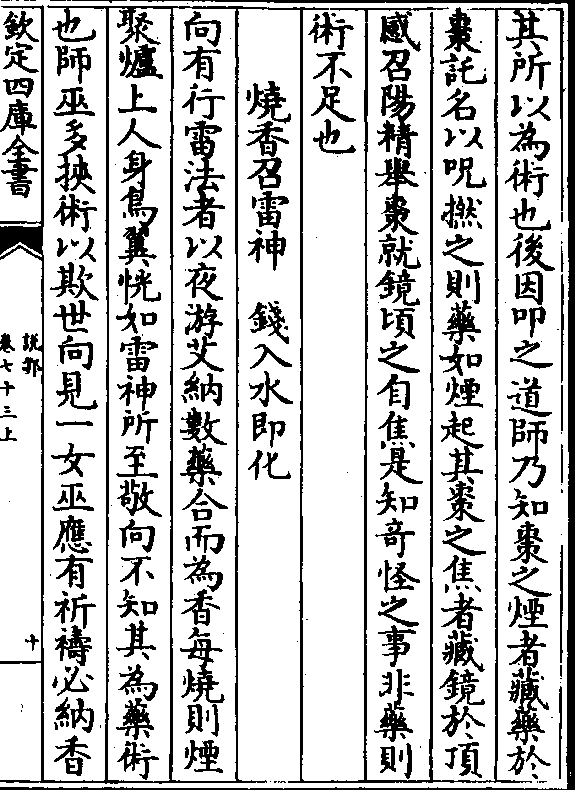 其所以為術也後因叩之道師乃知棗之煙者藏藥於
棗託名以呪撚之則藥如煙起其棗之焦者藏鏡於頂
感召陽精舉棗就鏡頃之自焦是知竒怪之事非藥則
術不足也
燒香召雷神　錢入水即化
向有行雷法者以夜游艾納數藥合而為香每燒則煙
聚爐上人身鳥翼恍如雷神所至敬向不知其為藥術
也師巫多挾術以欺世向見一女巫應有祈禱必納香
欽定四庫全書
説郛
卷七十三上
十